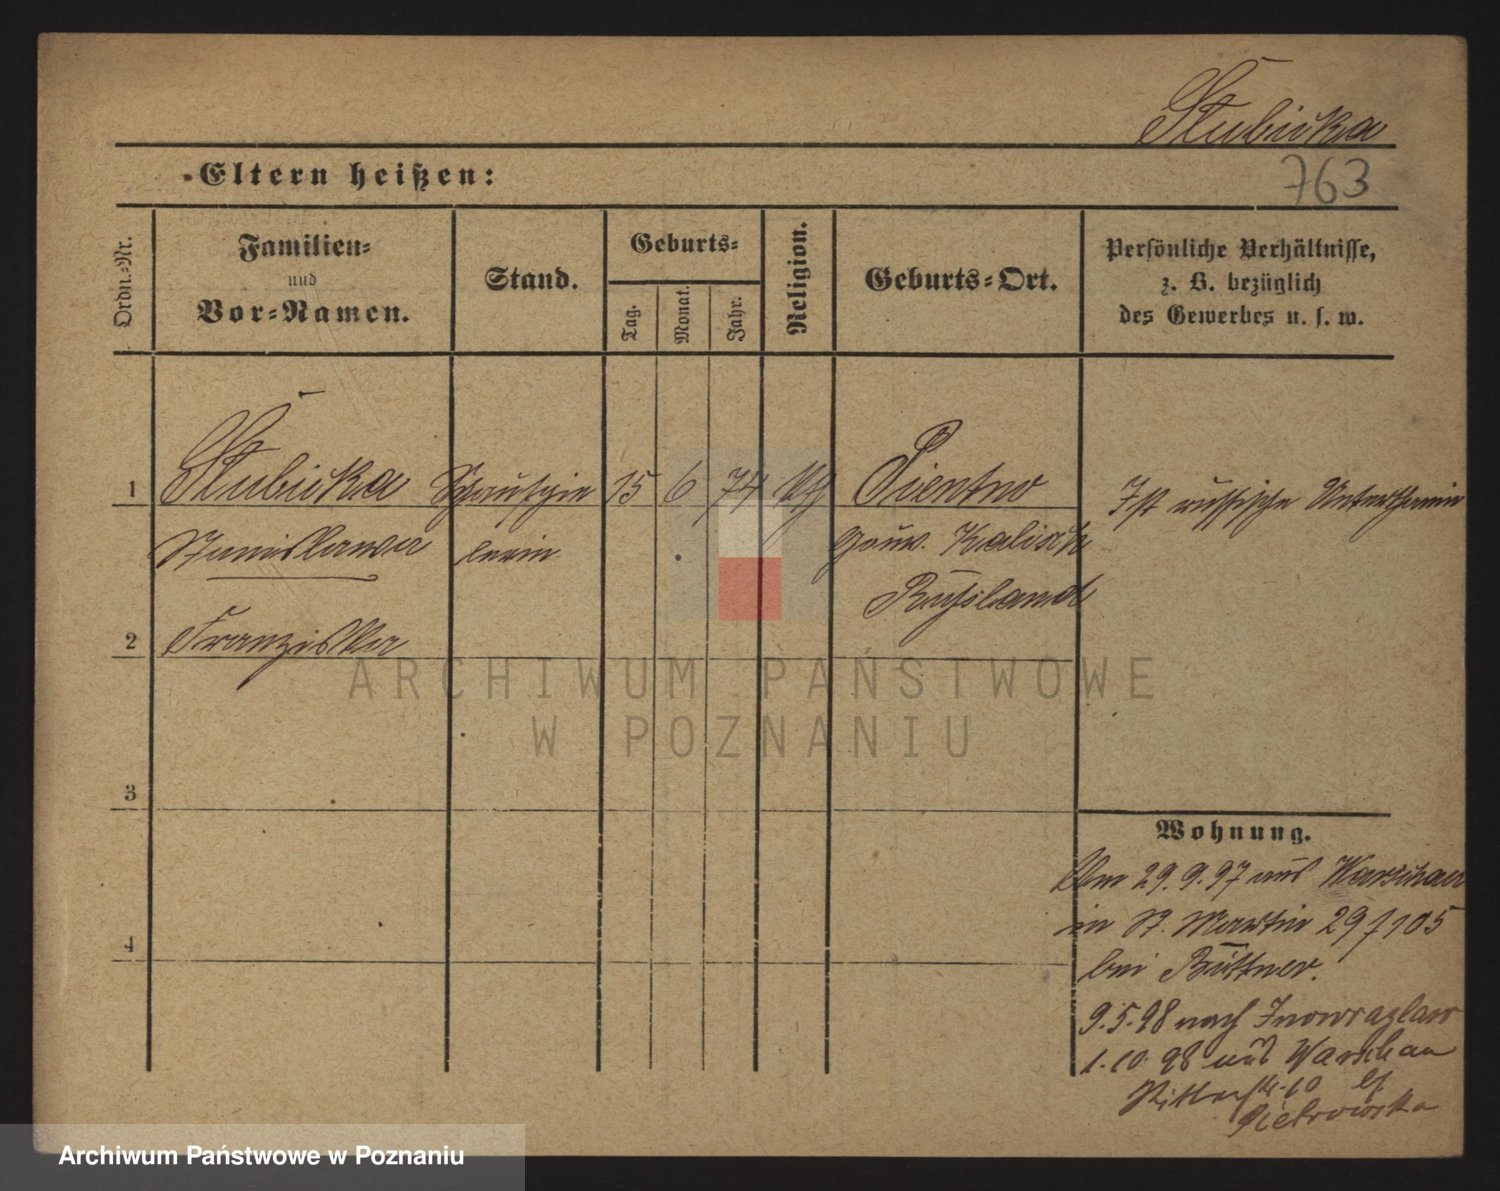 Stubicka
Eltern heißen:
763
Ordn.=Nr.
Familien=
und
Vor=Namen.
Stand.
Geburts=
Tag.
Monat.
Jahr.
Religion.
Geburts=Ort.
Persönliche Verhältnisse,
z. B. bezüglich
des Gewerbes u. s. w.
1 Stubicka Schauspie 15 6 74 kth Pientno Ist russische Unterthanin
Stanislawa lerin Gouv. Kalisch
Russland
2 Franziska
ARCHIWUM PAŃSTWOWE
W POZNANIU
3
Wohnung.
Am 29.9.97 aus Warschau
in St. Martin 29 / 105
4
bei Büttner.
9.5.98 nach Inowrazlaw
1.10.98 aus Warschau
Ritterstr. 10 bei
Pietrowska
Archiwum Państwowe w Poznaniu